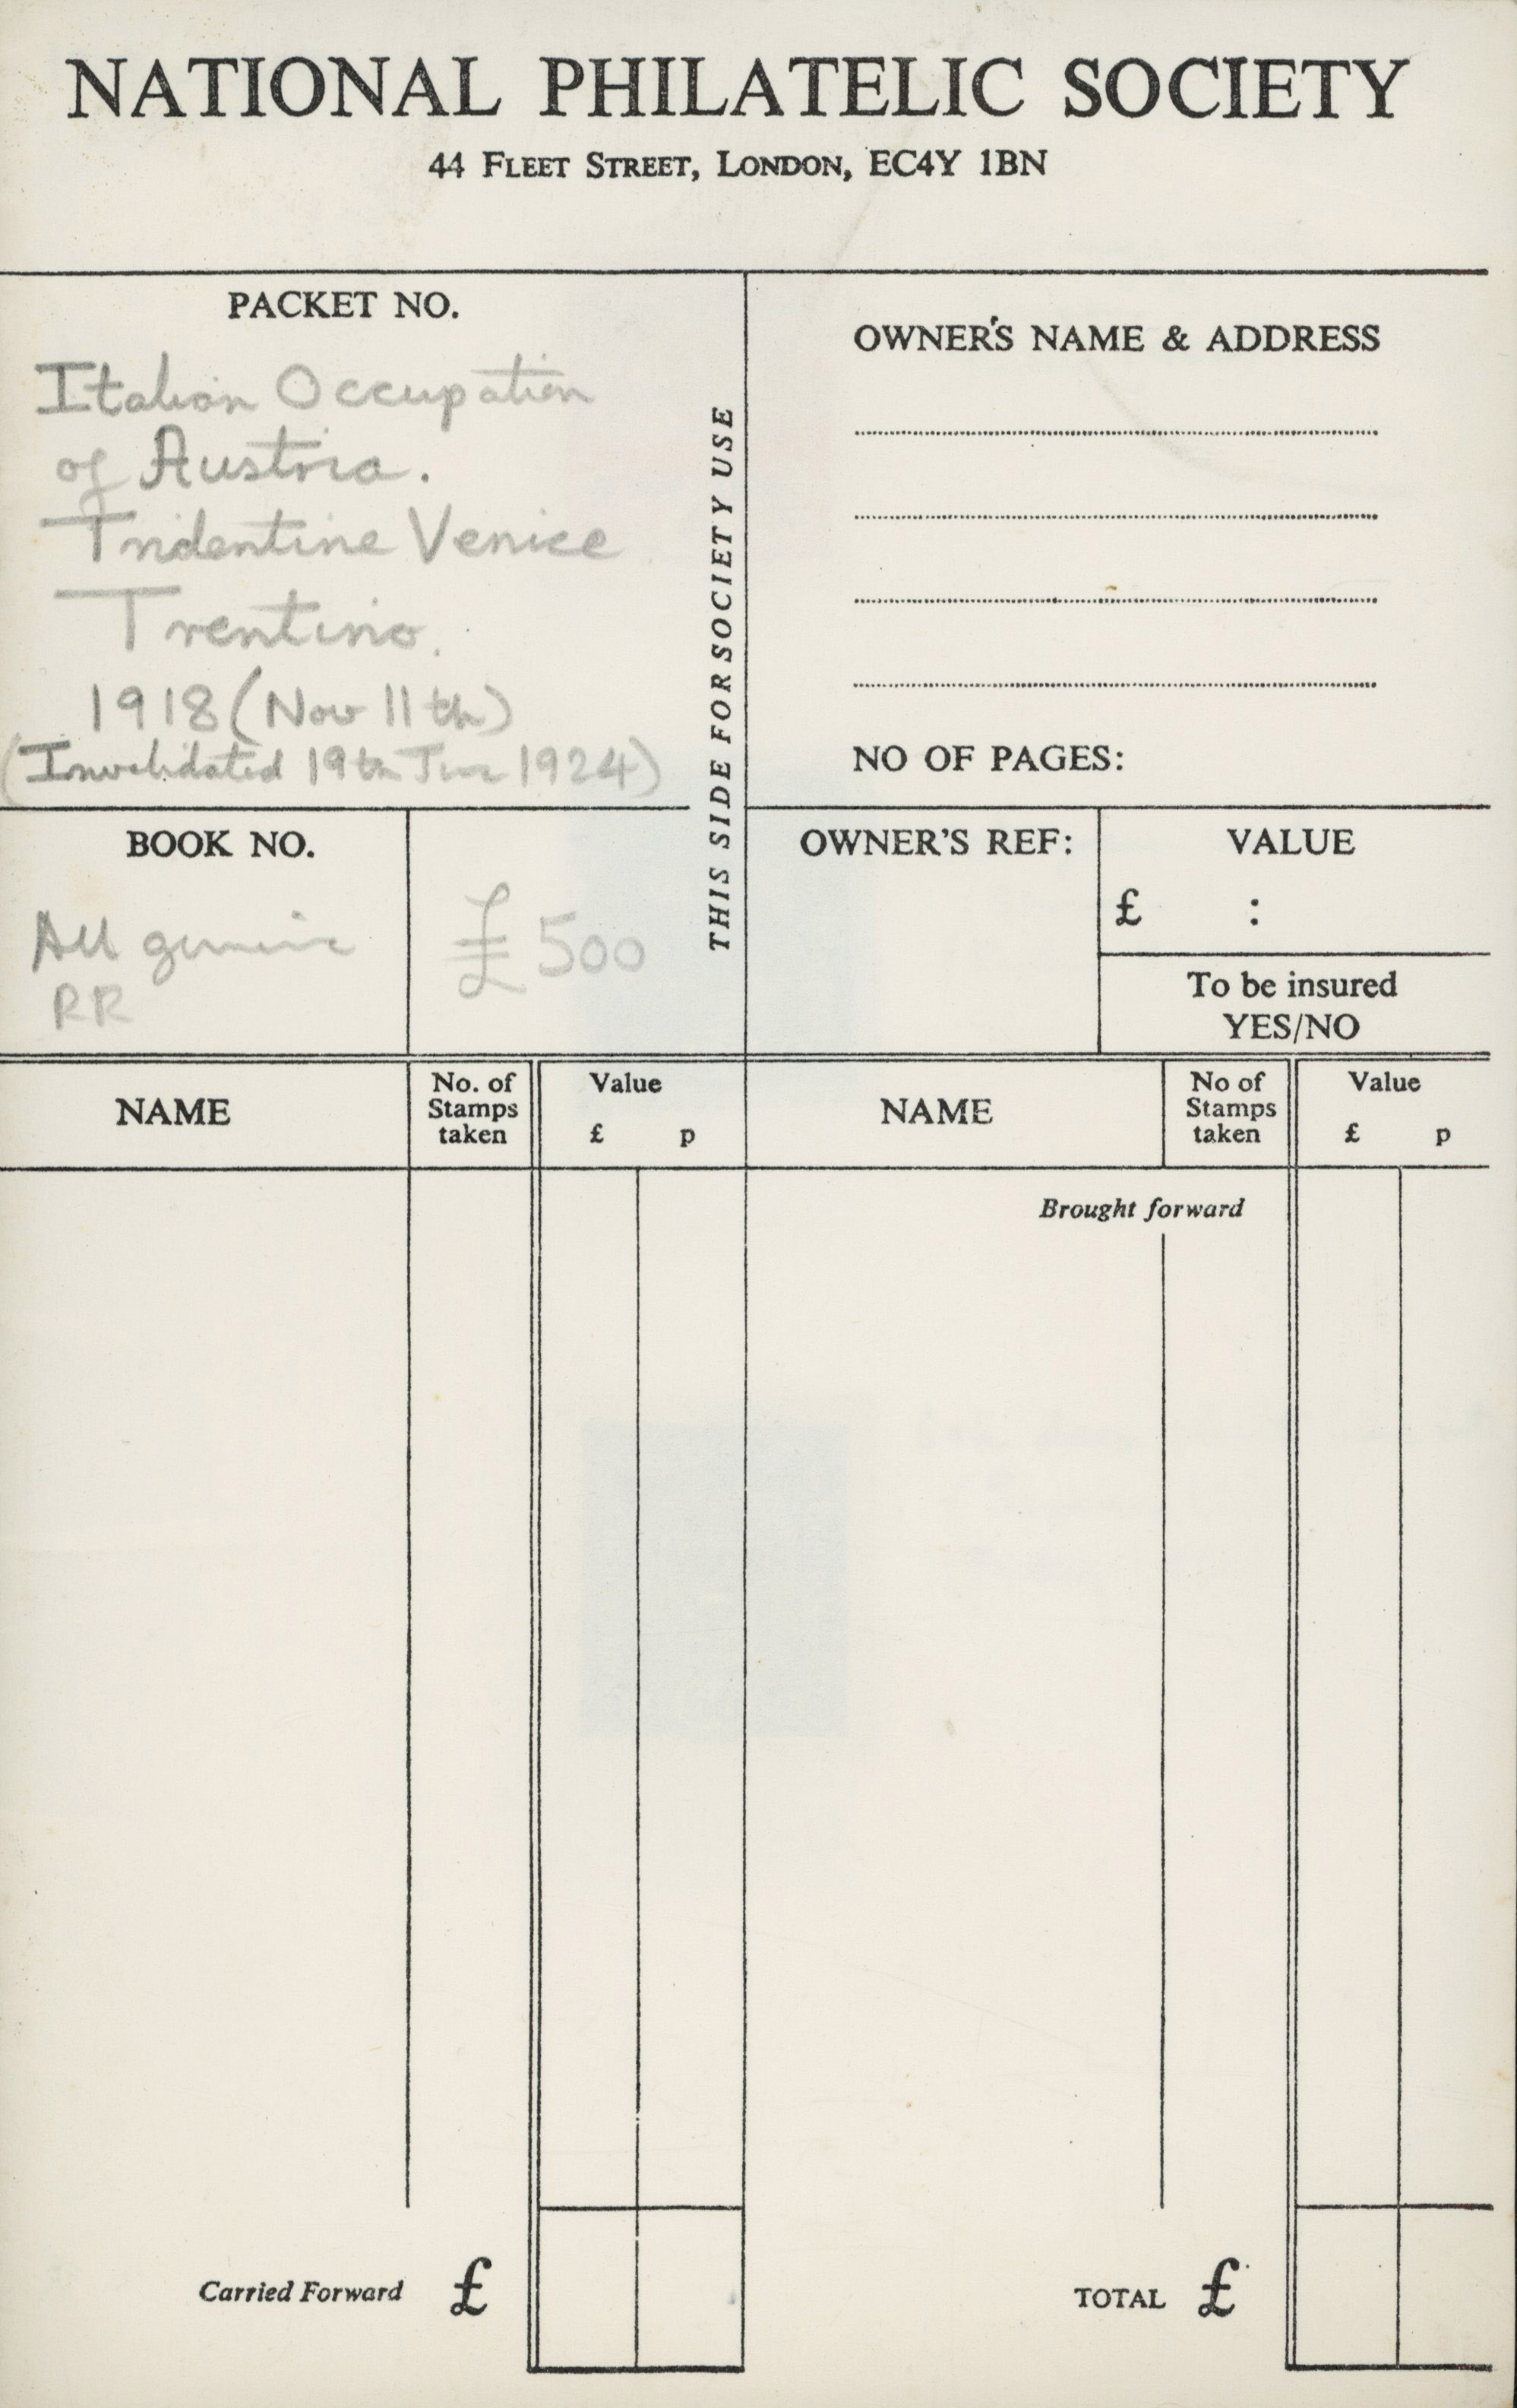 NATIONAL PHILATELIC SOCIETY
44 FLEET STREET, LONDON, EC4Y 1BN
PACKET NO.
Italian Occupation
of Austria.
Tridentine Venice
Trentino.
1918 (Nov 11th)
(Invalidated 19th 1924)
THIS SIDE FOR SOCIETY USE
OWNER'S NAME & ADDRESS
NO OF PAGES:
BOOK NO.
All genuine
RR
£ 500
OWNER'S REF:
VALUE
£ :
To be insured
YES/NO
NAME
No. of
Stamps
taken
Value
£ p
NAME
No of
Stamps
taken
Value
£ p
Brought forward
Carried Forward £
TOTAL £